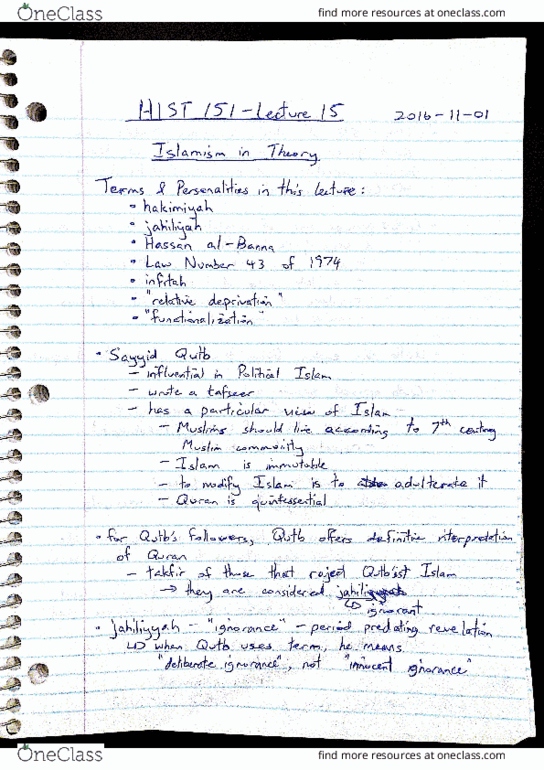 OneClass
find more resources at oneclass.com
HIST 151 - Lecture 15
2016-11-01
Islamism in Theory
Terms & Personalities in this lecture:
• hakimiyah
• jahiliyah
• Hassan al-Banna
• Law Number 43 of 1974
• infitah
• "relative deprivation"
• "functionalization"
• Sayyid Qutb
- influential in Political Islam
- wrote a tafseer
- has a particular view of Islam
- Muslims should live according to 7th century
Muslim community
- Islam is immutable
- to modify Islam is to adulterate it
- Quran is quintessential
• for Qutb's followers, Qutb offers definitive interpretation
of Quran
- takfir of those that reject Qutbist Islam
→ they are considered
↳ ignorant
• jahiliyyah - "ignorance" - period predating revelation
↳ when Qutb uses term, he means
"deliberate ignorance", not "innocent ignorance"
OneClass
find more resources at oneclass.com